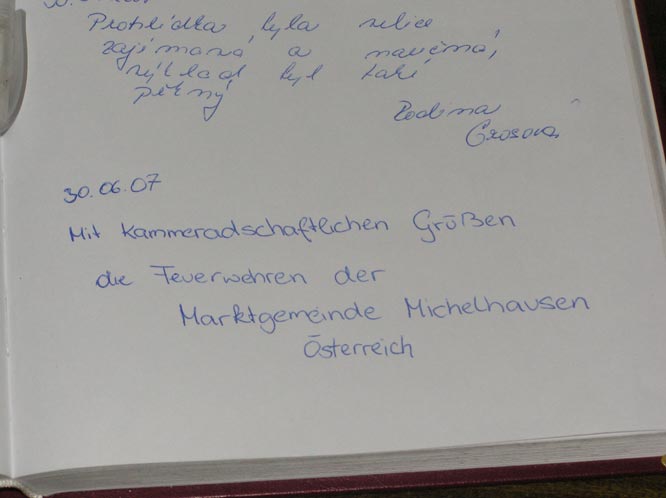 Prohlídka byla velice
zajímavá a naučná,
výklad byl také
pěkný
Rodina
Grosova
30.06.07
Mit kammeradschaftlichen Größen
die Feuerwehren der
Marktgemeinde Michelhausen
Österreich